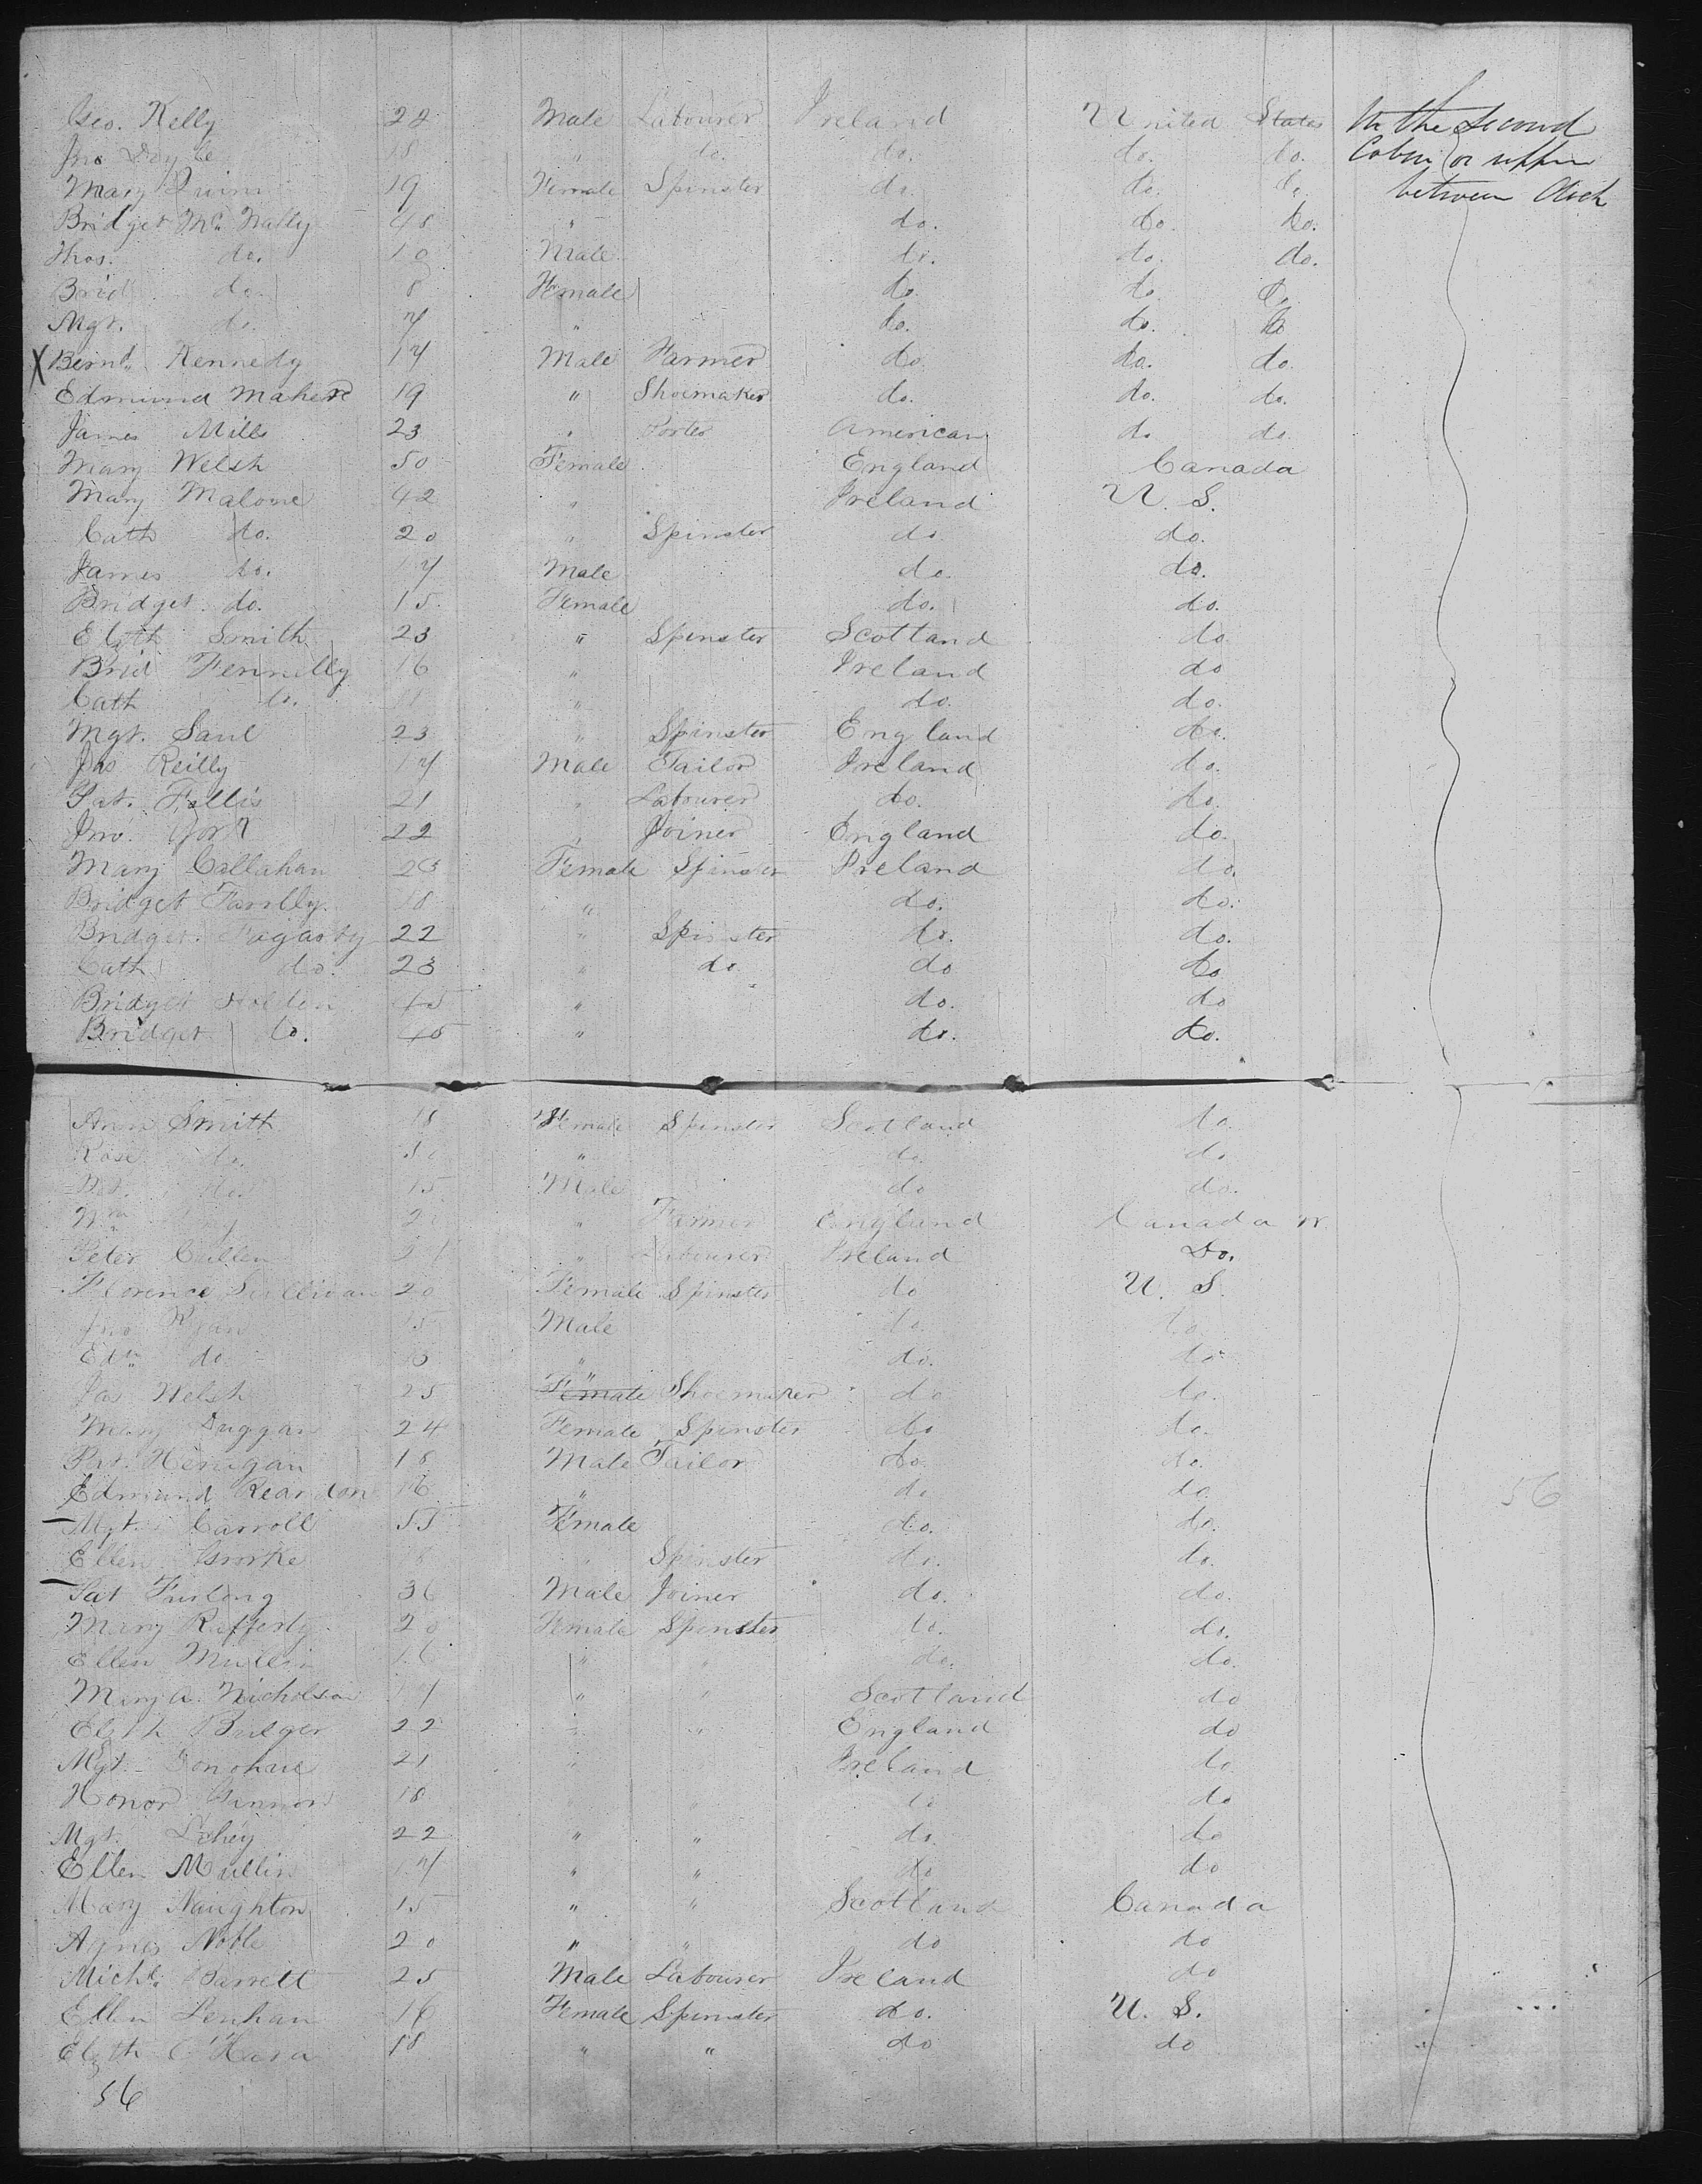 Geo. Kelly 22 Male Labourer Ireland United States In the Second
Jno Doyle 18 " do. do. do. do. Cabin or upper
Mary Quinn 19 Female Spinster do. do. do. between deck
Bridget Mc Nally 48 " do. do. do.
Thos. do. 10 Male do. do. do.
Brid do. 8 Female do. do. do.
Mgt. do. 7 " do. do. do
X Bernd. Kennedy 17 Male Farmer do do. do.
Edmund Maher 19 " Shoemaker do. do. do.
James Mills 23 " Porter American do do.
Mary Welsh 50 Female England Canada
Mary Malone 42 " Ireland U. S.
Cath do. 20 " Spinster do. do.
James do. 17 Male do. do.
Bridget do. 15 Female do. do.
Elizth Smith 23 " Spinster Scotland do.
Brid Fennelly 16 " Ireland do
Cath do. 11 " do. do.
Mgt. Saul 23 " Spinster England do.
Jas Reilly 17 Male Tailor Ireland do.
Pat. Fallis 21 " Labourer do. do.
Jno. York 22 " Joiner England do.
Mary Callahan 20 Female Spinster Ireland do.
Bridget Farrlly 18 " do. do.
Bridget Fogarty 22 " Spinster do. do.
Cath do. 23 " do do do
Bridget Holden 45 " do. do
Bridget do. " do. do.
Ann Smith 18 Female Spinster Scotland do.
Rose do. 50 " do. do
Pat. do. 15 Male do do.
Wm 2 " Farmer England Canada W.
Peter Cullen 21 " Labourer Ireland Do.
Florence Sullivan 20 Female Spinster do U. S.
Jno Ryan 15 Male do. do
Edm. do. 13 " do. do
Jas Welsh 25 " Female Shoemaker do do.
Mary Duggan 24 Female Spinster do do.
Pat. Henigan 18 Male Tailor do. do.
Edmund Reardon 16 " do do. 56
Mgt. Carroll 55 Female do. do.
Ellen Rorke 18 " Spinster do. do.
Pat Furlong 36 Male Joiner do. do.
Mary Rafferty 20 Female Spinster do. do.
Ellen Mullin 16 " " do. do.
Mary A. Nicholson " " Scotland do
Elizth Bulger 22 " " England do
Mgt. Donohue 21 " Ireland do
Honor Gannon 18 do do
Mgt. Lehey 22 " " do. do
Ellen Mullin 17 " " do do
Mary Naughton 15 " " Scotland Canada
Agnes Noble 20 " " do do
Michl. Barrett 25 Male Labourer Ireland do
Ellen Lenhan 16 Female Spinster do. U. S.
Elizth O'Hara 18 " " do do
56